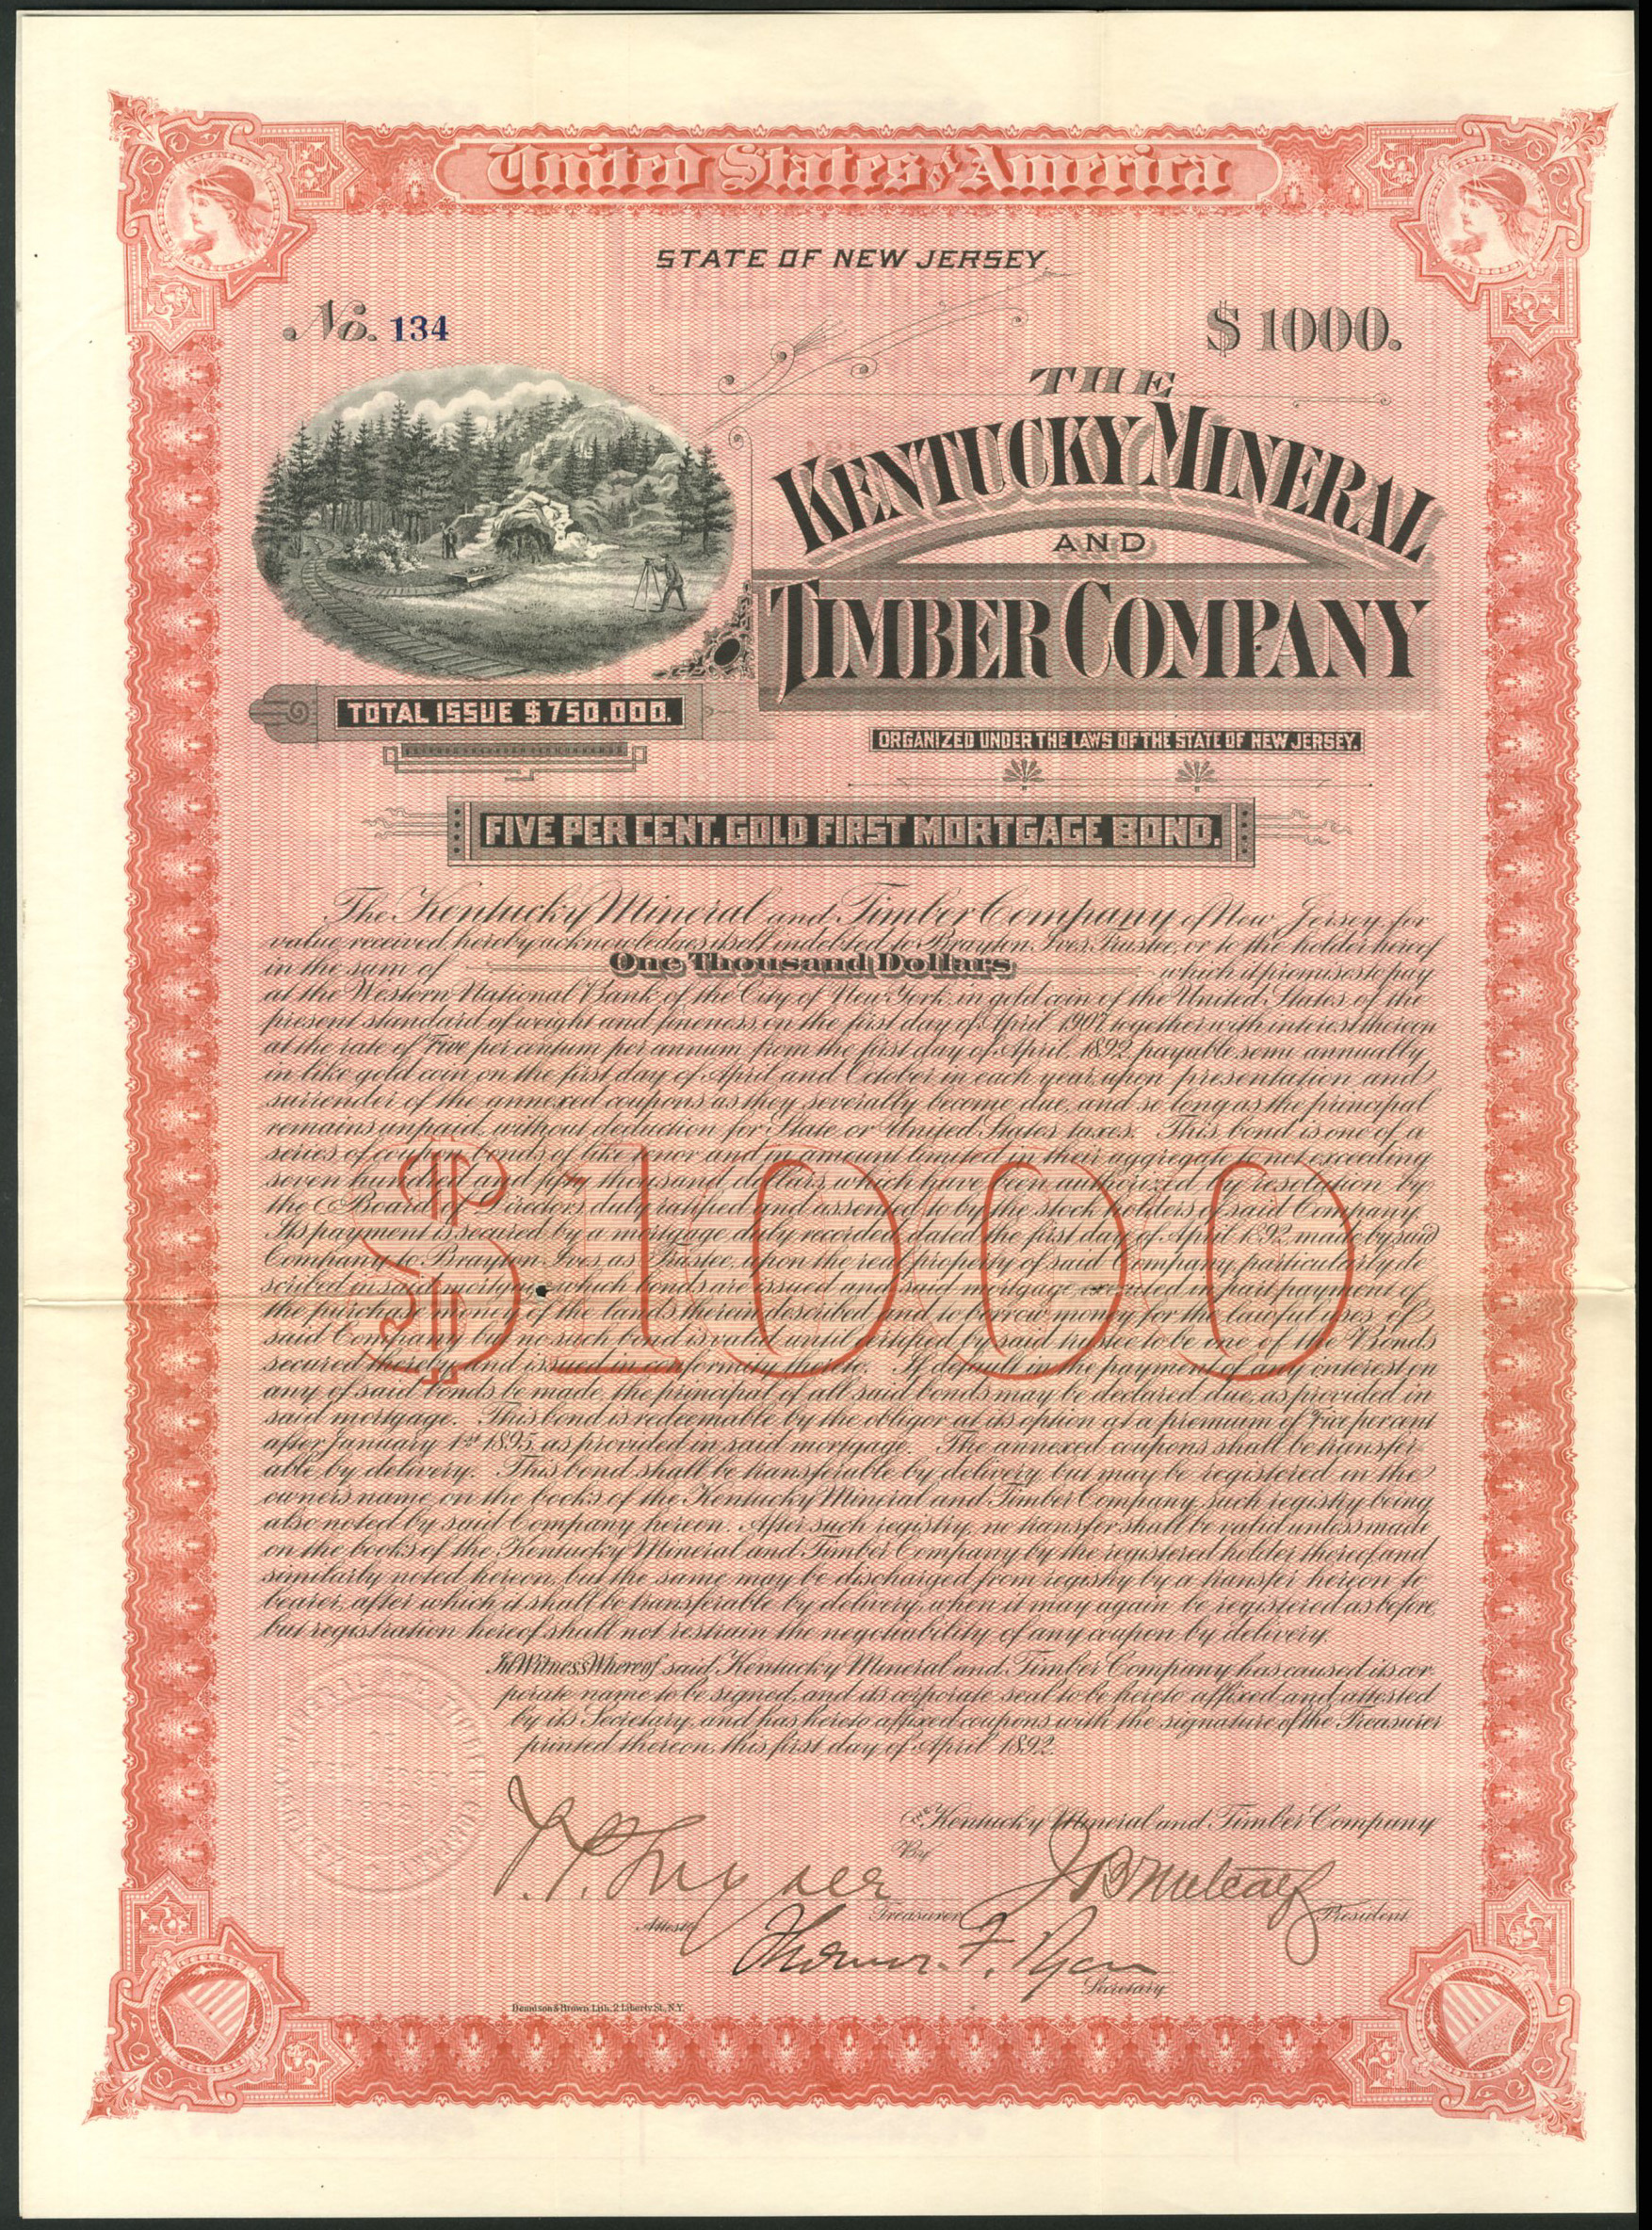 United States of America
STATE OF NEW JERSEY
No. 134
$ 1000.
THE
KENTUCKY MINERAL
AND
TIMBER COMPANY
TOTAL ISSUE $750.000.
ORGANIZED UNDER THE LAWS OF THE STATE OF NEW JERSEY.
FIVE PER CENT. GOLD FIRST MORTGAGE BOND.
The Kentucky Mineral and Timber Company of New Jersey for
value received, hereby acknowledges itself indebted to Brayton Ives, Trustee, or to the holder hereof
in the sum of One Thousand Dollars which it promises to pay
at the Western National Bank of the City of New York, in gold coin of the United States of the
present standard of weight and fineness, on the first day of April 1907, together with interest thereon
at the rate of Five per centum per annum from the first day of April, 1892, payable semi annually
in like gold coin on the first day of April and October in each year, upon presentation and
surrender of the annexed coupons as they severally become due, and so long as the principal
remains unpaid, without deduction for State or United States taxes. This bond is one of a
series of coupon bonds of like tenor and in amount limited in their aggregate to not exceeding
seven hundred and fifty thousand dollars, which have been authorized by resolution by
the Board of Directors duly ratified and assented to by the stockholders of said Company.
Its payment is secured by a mortgage, duly recorded, dated the first day of April 1892, made by said
Company to Brayton Ives, as Trustee, upon the real property of said Company, particularly de
scribed in said mortgage, which bonds are issued and said mortgage executed in part payment of
the purchase money of the lands therein described and to borrow money for the lawful uses of
said Company but no such bond is valid until certified by said trustee to be one of the Bonds
secured thereby and issued in conformity thereto. If default in the payment of any interest on
any of said bonds be made, the principal of all said bonds may be declared due, as provided in
said mortgage. This bond is redeemable by the obligor at its option at a premium of Five per cent
after January 1st 1895, as provided in said mortgage. The annexed coupons shall be transfer
able by delivery. This bond shall be transferable by delivery, but may be registered in the
owner's name, on the books of the Kentucky Mineral and Timber Company, such registry being
also noted by said Company hereon. After such registry, no transfer shall be valid unless made
on the books of the Kentucky Mineral and Timber Company by the registered holder thereof and
similarly noted hereon, but the same may be discharged from registry by a transfer hereon to
bearer, after which it shall be transferable by delivery, when it may again be registered as before,
but registration hereof shall not restrain the negotiability of any coupon by delivery.
$1000
In Witness Whereof said Kentucky Mineral and Timber Company has caused its cor
porate name to be signed, and its corporate seal to be hereto affixed and attested
by its Secretary, and has hereto affixed coupons with the signature of the Treasurer
printed thereon, this first day of April 1892.
The Kentucky Mineral and Timber Company
By
J B Metcalf
Treasurer
President
Attest
Thomas. F. Ryan
Secretary
Denison & Brown Lith. 2 Liberty St., N.Y.